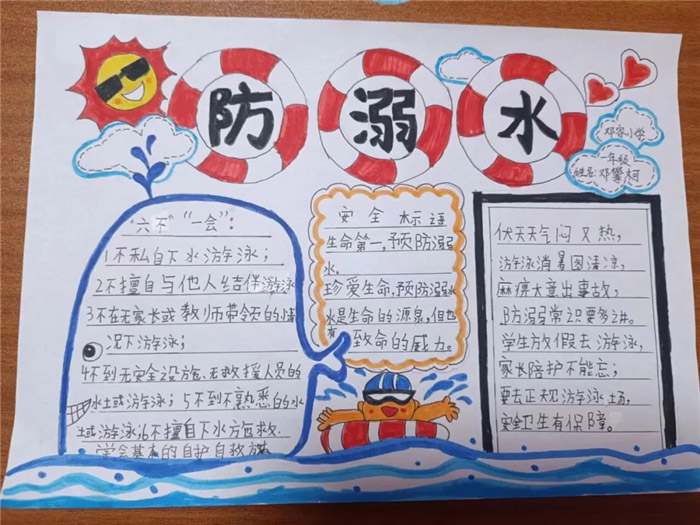 防溺水
邓容小学
一年级
姓名:邓攀柯
"六不""一会":
1不私自下水游泳;
2不擅自与他人结伴游泳
3不在无家长或教师带领的情
况下游泳;
4不到无安全设施、无救援人员的
水域游泳;5不到不熟悉的水
域游泳;6不擅自下水施救.
学会基本的自护自救方法
安全标语
生命第一,预防溺
水.
珍爱生命,预防溺水
水是生命的源泉,但也
有致命的威力。
伏天天气闷又热,
游泳消暑图清凉,
麻痹大意出事故,
防溺常识要多讲。
学生放假去游泳,
家长陪护不能忘;
要去正规游泳场,
安全卫生有保障。